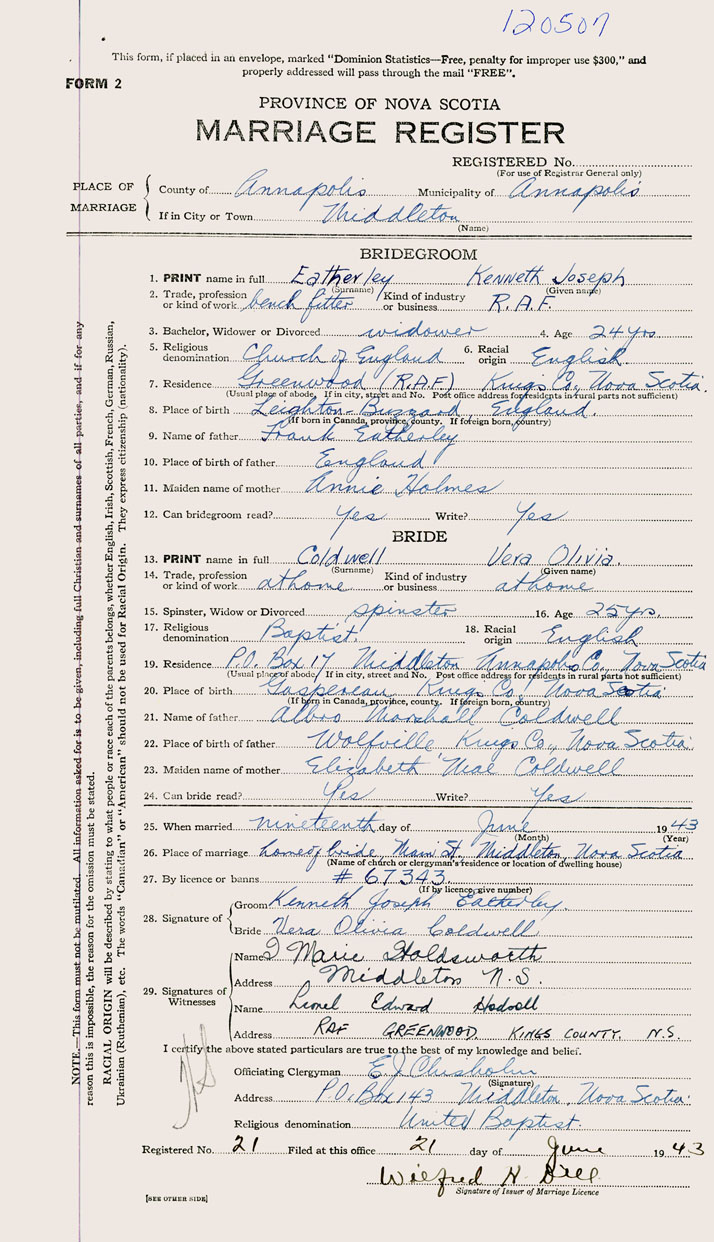 120507
This form, if placed in an envelope, marked "Dominion Statistics—Free, penalty for improper use $300," and
properly addressed will pass through the mail "FREE".
FORM 2
PROVINCE OF NOVA SCOTIA
MARRIAGE REGISTER
REGISTERED No.
(For use of Registrar General only)
PLACE OF MARRIAGE
County of Annapolis Municipality of Annapolis
If in City or Town Middleton
(Name)
BRIDEGROOM
1. PRINT name in full Eatherley Kenneth Joseph
(Surname) (Given name)
2. Trade, profession or kind of work bench fitter Kind of industry or business R.A.F.
3. Bachelor, Widower or Divorced widower 4. Age 24 yrs
5. Religious denomination Church of England 6. Racial origin English
7. Residence Greenwood (R.A.F) Kings Co., Nova Scotia
(Usual place of abode, If in city, street and No. Post office address for residents in rural parts not sufficient)
8. Place of birth Leighton Buzzard, England.
(If born in Canada, province, county. If foreign born, country)
9. Name of father Frank Eatherley
10. Place of birth of father England
11. Maiden name of mother Annie Holmes
12. Can bridegroom read? Yes Write? Yes
BRIDE
13. PRINT name in full Coldwell Vera Olivia.
(Surname) (Given name)
14. Trade, profession or kind of work athome Kind of industry or business athome
15. Spinster, Widow or Divorced spinster 16. Age 25 yrs.
17. Religious denomination Baptist. 18. Racial origin English
19. Residence P.O. Box 17 Middleton Annapolis Co., Nova Scotia
(Usual place of abode, If in city, street and No. Post office address for residents in rural parts not sufficient)
20. Place of birth Gaspereau Kings Co., Nova Scotia
(If born in Canada, province, county. If foreign born, country)
21. Name of father Albro Marshall Coldwell
22. Place of birth of father Wolfville Kings Co., Nova Scotia
23. Maiden name of mother Elizabeth Mae Coldwell
24. Can bride read? Yes Write? Yes
25. When married nineteenth day of June 1943
(Month) (Year)
26. Place of marriage home of bride, Main St. Middleton, Nova Scotia
(Name of church or clergyman's residence or location of dwelling house)
27. By licence or banns # 67343
(If by licence, give number)
28. Signature of
Groom Kenneth Joseph Eatherley.
Bride Vera Olivia Coldwell
29. Signatures of Witnesses
Name Marie Holdsworth
Address Middleton N.S.
Name Lionel Edward
Address RAF GREENWOOD. KINGS COUNTY. N.S.
I certify the above stated particulars are true to the best of my knowledge and belief.
Officiating Clergyman E J Chisholm
(Signature)
Address P.O. Box 143 Middleton, Nova Scotia
Religious denomination United Baptist.
Registered No. 21 Filed at this office 21 day of June 1943
Wilfred H. Dill
Signature of Issuer of Marriage Licence
[SEE OTHER SIDE]
NOTE.—This form must not be mutilated. All information asked for is to be given, including full Christian and surnames of all parties, and if for any
reason this is impossible, the reason for the omission must be stated.
RACIAL ORIGIN will be described by stating to what people or race each of the parents belongs, whether English, Irish, Scottish, French, German, Russian,
Ukrainian (Ruthenian), etc. The words "Canadian" or "American" should not be used for Racial Origin. They express citizenship (nationality).